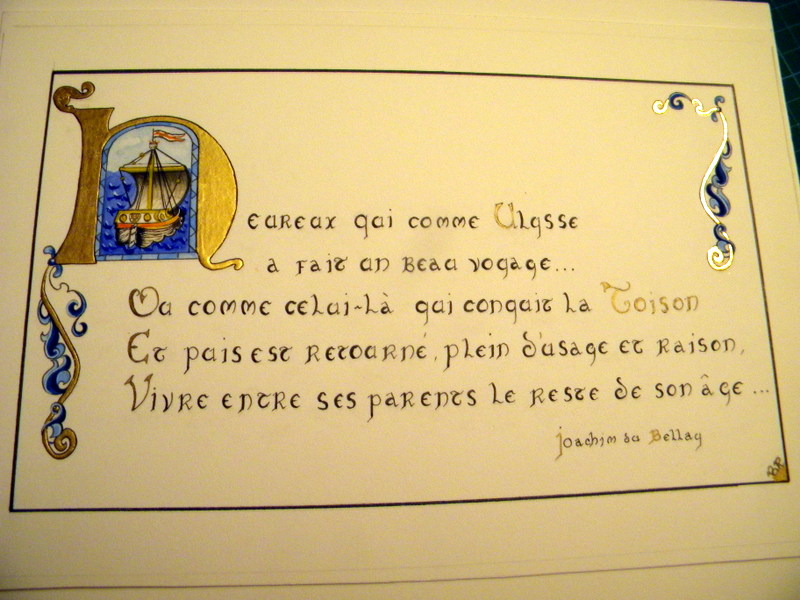 Heureux qui comme Ulysse
a fait un beau voyage...
Ou comme celui-là qui conquit la Toison
Et puis est retourné, plein d'usage et raison,
Vivre entre ses parents le reste de son âge...
Joachim du Bellay